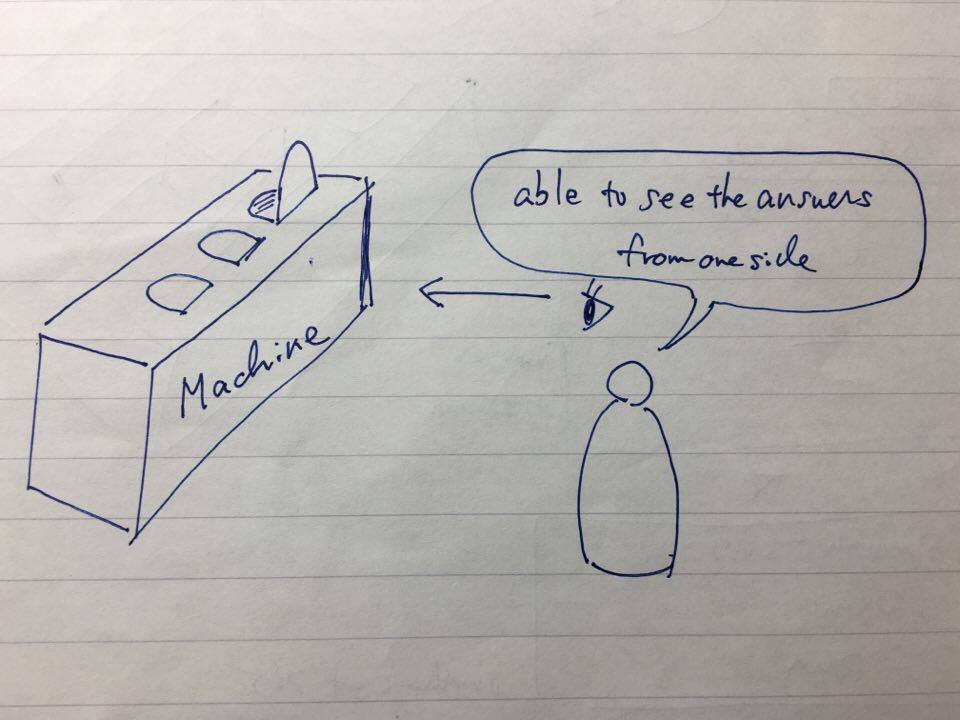 able to see the answers
from one side
Machine